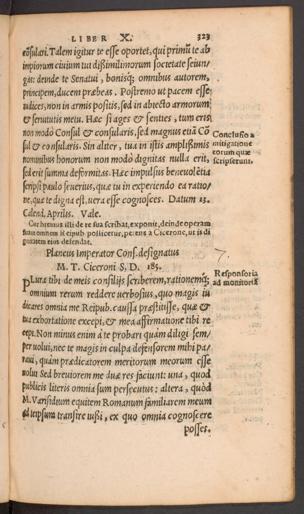 LIBER X. 323
cõsulari. Talem igitur te esse oportet, qui primũ te ab
impiorum ciuium tui dißimilimorum societate seiun-
gas: deinde te Senatui, bonisq́; omnibus autorem,
principem, ducem præbeas. Postremo ut pacem esse
iudices, non in armis positis, sed in abiecto armorum
& seruitutis metu. Hæc si ages & senties, tum eris
non modò Consul & consularis, sed magnus etiã Cõ
sul & consularis. Sin aliter, tua in istis amplißimis
nominibus honorum non modo dignitas nulla erit,
sed erit summa deformitas. Hæc impulsus beneuolẽtia
scripsi paulo seuerius, quæ tu in experiendo ea ratio-
ne, quæ te digna est, uera esse cognosces. Datum 13.
Calend. Aprilis. Vale.
Conclusio a
mitigatione
eorum quæ
scripserunt.
Cur hæc illi de re sua scribat, exponit, deinde operam
suam omnem Reipub. pollicetur, petens a Cicerone, ut is di
gnitatem eius defendat.
Plancus Imperator Cons. designatus
M. T. Ciceroni S. D. 185.
7
Responsoria
ad monitoriã
PLura tibi de meis consilijs scriberem, rationemq́;
omnium rerum reddere uerbosius, quo magis iu
dicares omnia me Reipub. caussa præstitisse, quæ &
tua exhortatione excepi, & mea affirmatione tibi re
cepi. Non minus enim à te probari quàm diligi sem/
per uolui, nec te magis in culpa defensorem mihi pa/
raui, quàm prædicatorem meritorum meorum esse
uolui. Sed breuiorem me duæ res faciunt: una, quod
publicis literis omnia sum persecutus: altera, quòd
M. Varisidium equitem Romanum familiarem meum
ad teipsum transire iußi, ex quo omnia cognoscere
posses.